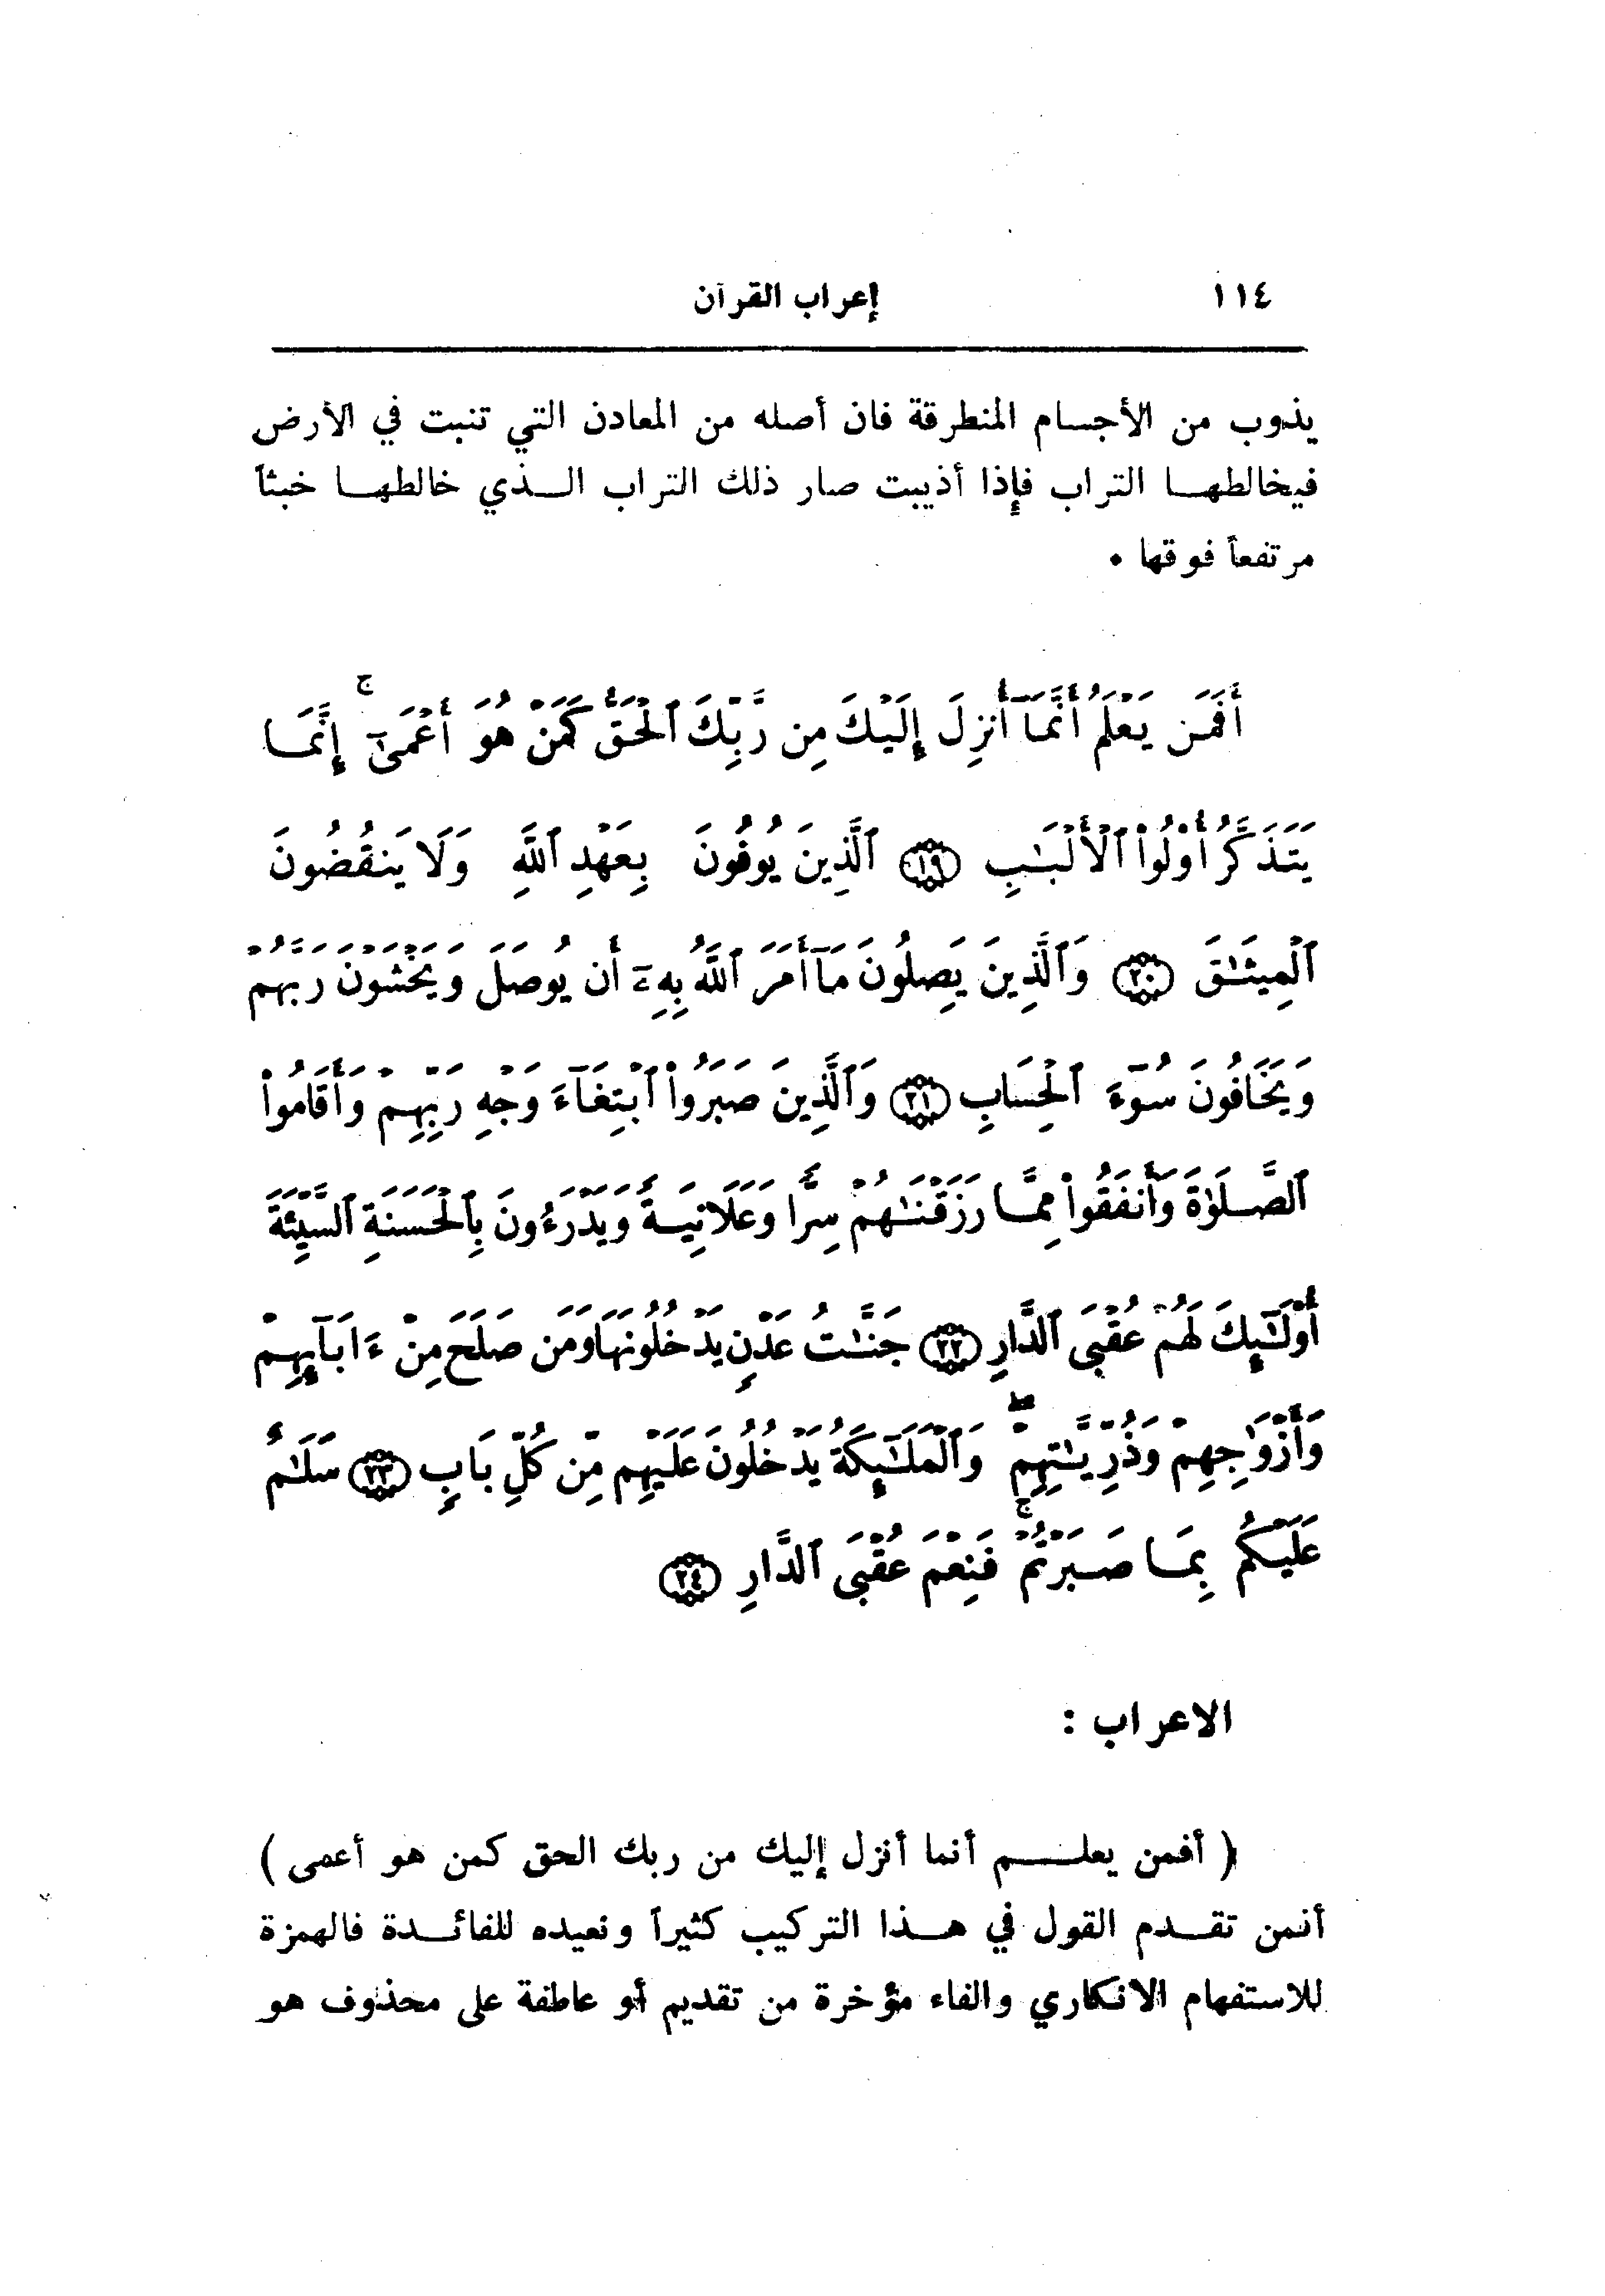 ١١٤ إعراب القرآن
يذوب من الأجسام المنطرقة فان أصله من المعادن التي تنبت في الأرض
فيخالطها التراب فإذا أذيبت صار ذلك التراب الذي خالطها خبثاً
مرتفعاً فوقها •
أَفَمَن يَعْلَمُ أَنَّمَآ أُنزِلَ إِلَيْكَ مِن رَّبِّكَ ٱلْحَقُّ كَمَنْ هُوَ أَعْمَىٰٓ ۚ إِنَّمَا
يَتَذَكَّرُ أُو۟لُوا۟ ٱلْأَلْبَـٰبِ ⁧﴿١٩﴾⁩ ٱلَّذِينَ يُوفُونَ بِعَهْدِ ٱللَّهِ وَلَا يَنقُضُونَ
ٱلْمِيثَـٰقَ ﴿٢٠﴾ وَٱلَّذِينَ يَصِلُونَ مَآ أَمَرَ ٱللَّهُ بِهِۦٓ أَن يُوصَلَ وَيَخْشَوْنَ رَبَّهُمْ
وَيَخَافُونَ سُوٓءَ ٱلْحِسَابِ ﴿٢١﴾ وَٱلَّذِينَ صَبَرُوا۟ ٱبْتِغَآءَ وَجْهِ رَبِّهِمْ وَأَقَامُوا۟
ٱلصَّلَوٰةَ وَأَنفَقُوا۟ مِمَّا رَزَقْنَـٰهُمْ سِرًّا وَعَلَانِيَةً وَيَدْرَءُونَ بِٱلْحَسَنَةِ ٱلسَّيِّئَةَ
أُو۟لَـٰٓئِكَ لَهُمْ عُقْبَى ٱلدَّارِ ﴿٢٢﴾ جَنَّـٰتُ عَدْنٍ يَدْخُلُونَهَا وَمَن صَلَحَ مِنْ ءَابَآئِهِمْ
وَأَزْوَٰجِهِمْ وَذُرِّيَّـٰتِهِمْ ۖ وَٱلْمَلَـٰٓئِكَةُ يَدْخُلُونَ عَلَيْهِم مِّن كُلِّ بَابٍ ﴿٢٣﴾ سَلَـٰمٌ
عَلَيْكُم بِمَا صَبَرْتُمْ ۚ فَنِعْمَ عُقْبَى ٱلدَّارِ ﴿٢٤﴾
الاعراب :
( أفمن يعلم أنما أنزل إليك من ربك الحق كمن هو أعمى )
أنمن تقدم القول في هذا التركيب كثيراً ونعيده للفائدة فالهمزة
للاستفهام الانكاري والفاء مؤخرة من تقديم أو عاطفة على محذوف هو